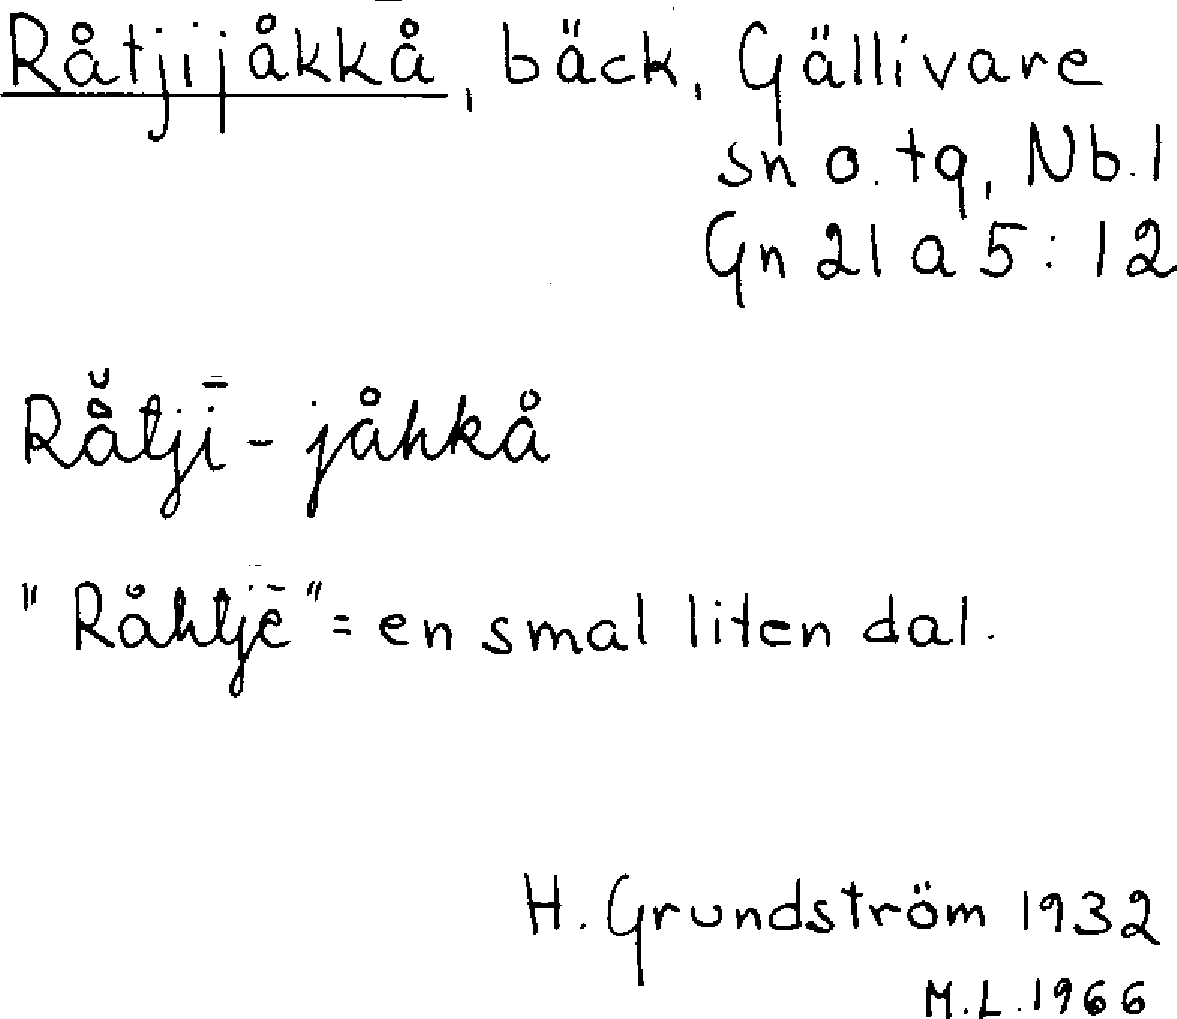 Råtjijåkkå, bäck, Gällivare
sn o. tg, Nb. l
Gn 21 a 5:12
Rå̆tjī - jåhkå
"Råhtjē" = en smal liten dal.
H. Grundström 1932
M.L. 1966